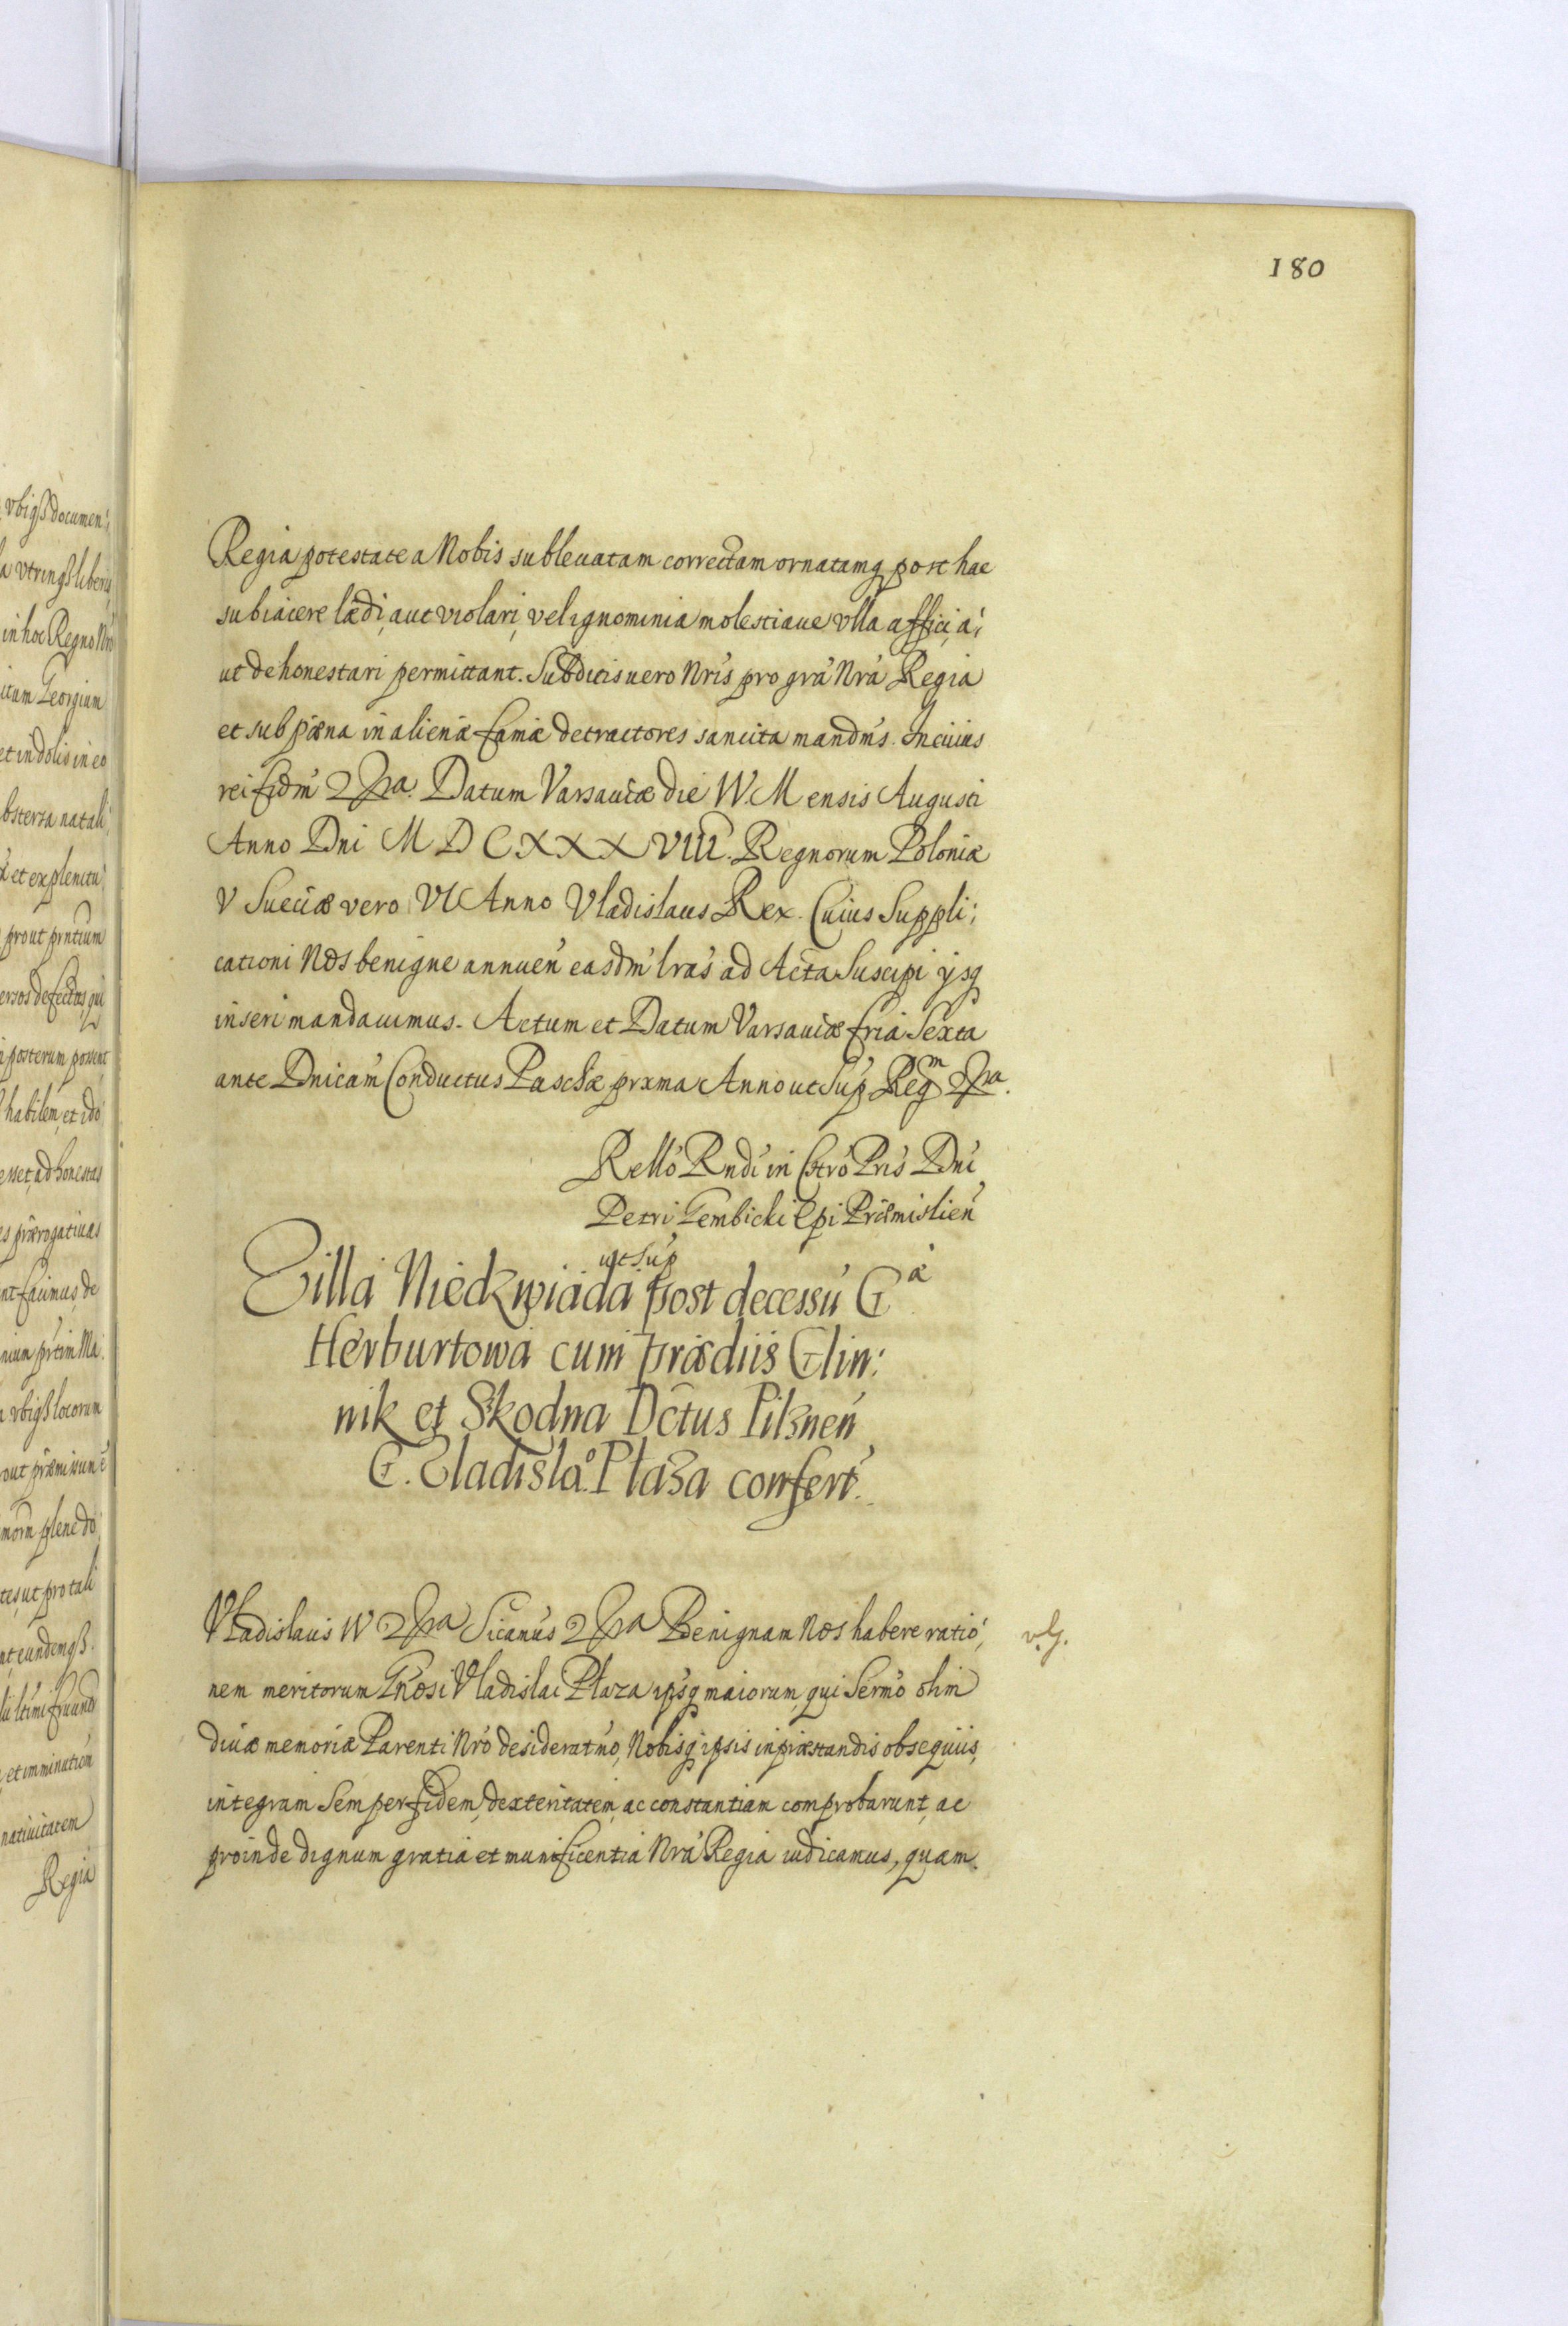 180
Regia potestate a Nobis subleuatam correctam ornatamq post hac
subiacere lædi, aut violari, vel ignominia molestiaue vlla affici, a;
ut dehonestari permittant. Subditis uero Nris pro gra Nra Regia
et sub pæna in alienæ famæ detractores sancita mandms. In cuius
rei fidm Datum Varsauiæ die IV. Mensis Augusti
Anno Dni M D C X X X VIII. Regnorum Poloniæ
V Sueciæ vero VI Anno Vladislaus Rex. Cuius Suppli;
cationi Nos benigne annuen easdm lras ad Acta Suscipi ijsq
inseri mandauimus. Actum et Datum Varsauiæ fria Sexta
ante Dnicam Conductus Paschæ prxma Anno ut Sup Regm
Rello Rndi in Chro Pris Dni
Petri Gembicki Epi Præmislien
ut Sup
Villa Niedzwiada post decessu Gæ
Herburtowa cum prædiis Glin:
nik et Skodna Dctus Pilznen
G. Vladislao Płaza confert.
Vladislaus IV Sicamus Benignam Nos habere ratio;
v. G.
nem meritorum Gnosi Vladislai Płaza ipsq maiorum, qui Sermo olim
diuæ memoriæ Parenti Nro desideratmo, Nobisq ipsis in præstandis obsequiis,
integram Semper fidem, dexteritatem, ac constantiam comprobarunt, ac
proinde dignum gratia et munificentia Nra Regia iudicamus, quam
vbiqß documen;
a vtrinqß liberu
in hoc Regno Nro
itum Georgium
et indolis in eo
bstersa natali
et explenitu
prout pntium
ersos defectus, qui
posterum possent
habilem, et ido
esset, ad honestas
es prærogatiuas
nt facimus, de
nium prtim Ma
vbiqß locorum
out præmissum e
morm plene do
tes, ut pro tali
nt, eundemqß
et imminution
natiuitatem
Regia